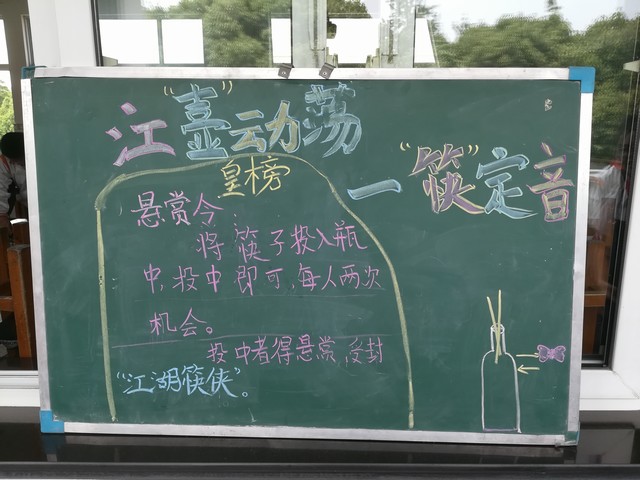 江“壶”动荡
一“筷”定音
皇榜
悬赏令：
将筷子投入瓶
中，投中即可，每人两次
机会。
投中者得悬赏，受封
“江湖筷侠”。